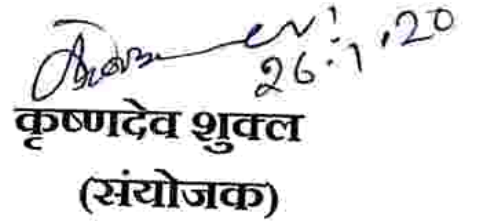 26.1.20
कृष्णदेव शुक्ल
(संयोजक)